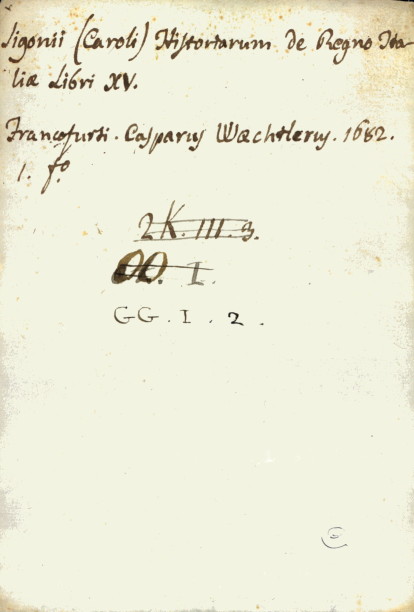 Sigonii (Caroli) Historiarum de Regno Ita
liæ Libri XV.
Francofurti. Casparus Waechtlerus. 1682.
1. fo
2K. III. 3.
OO. I.
GG. I. 2.